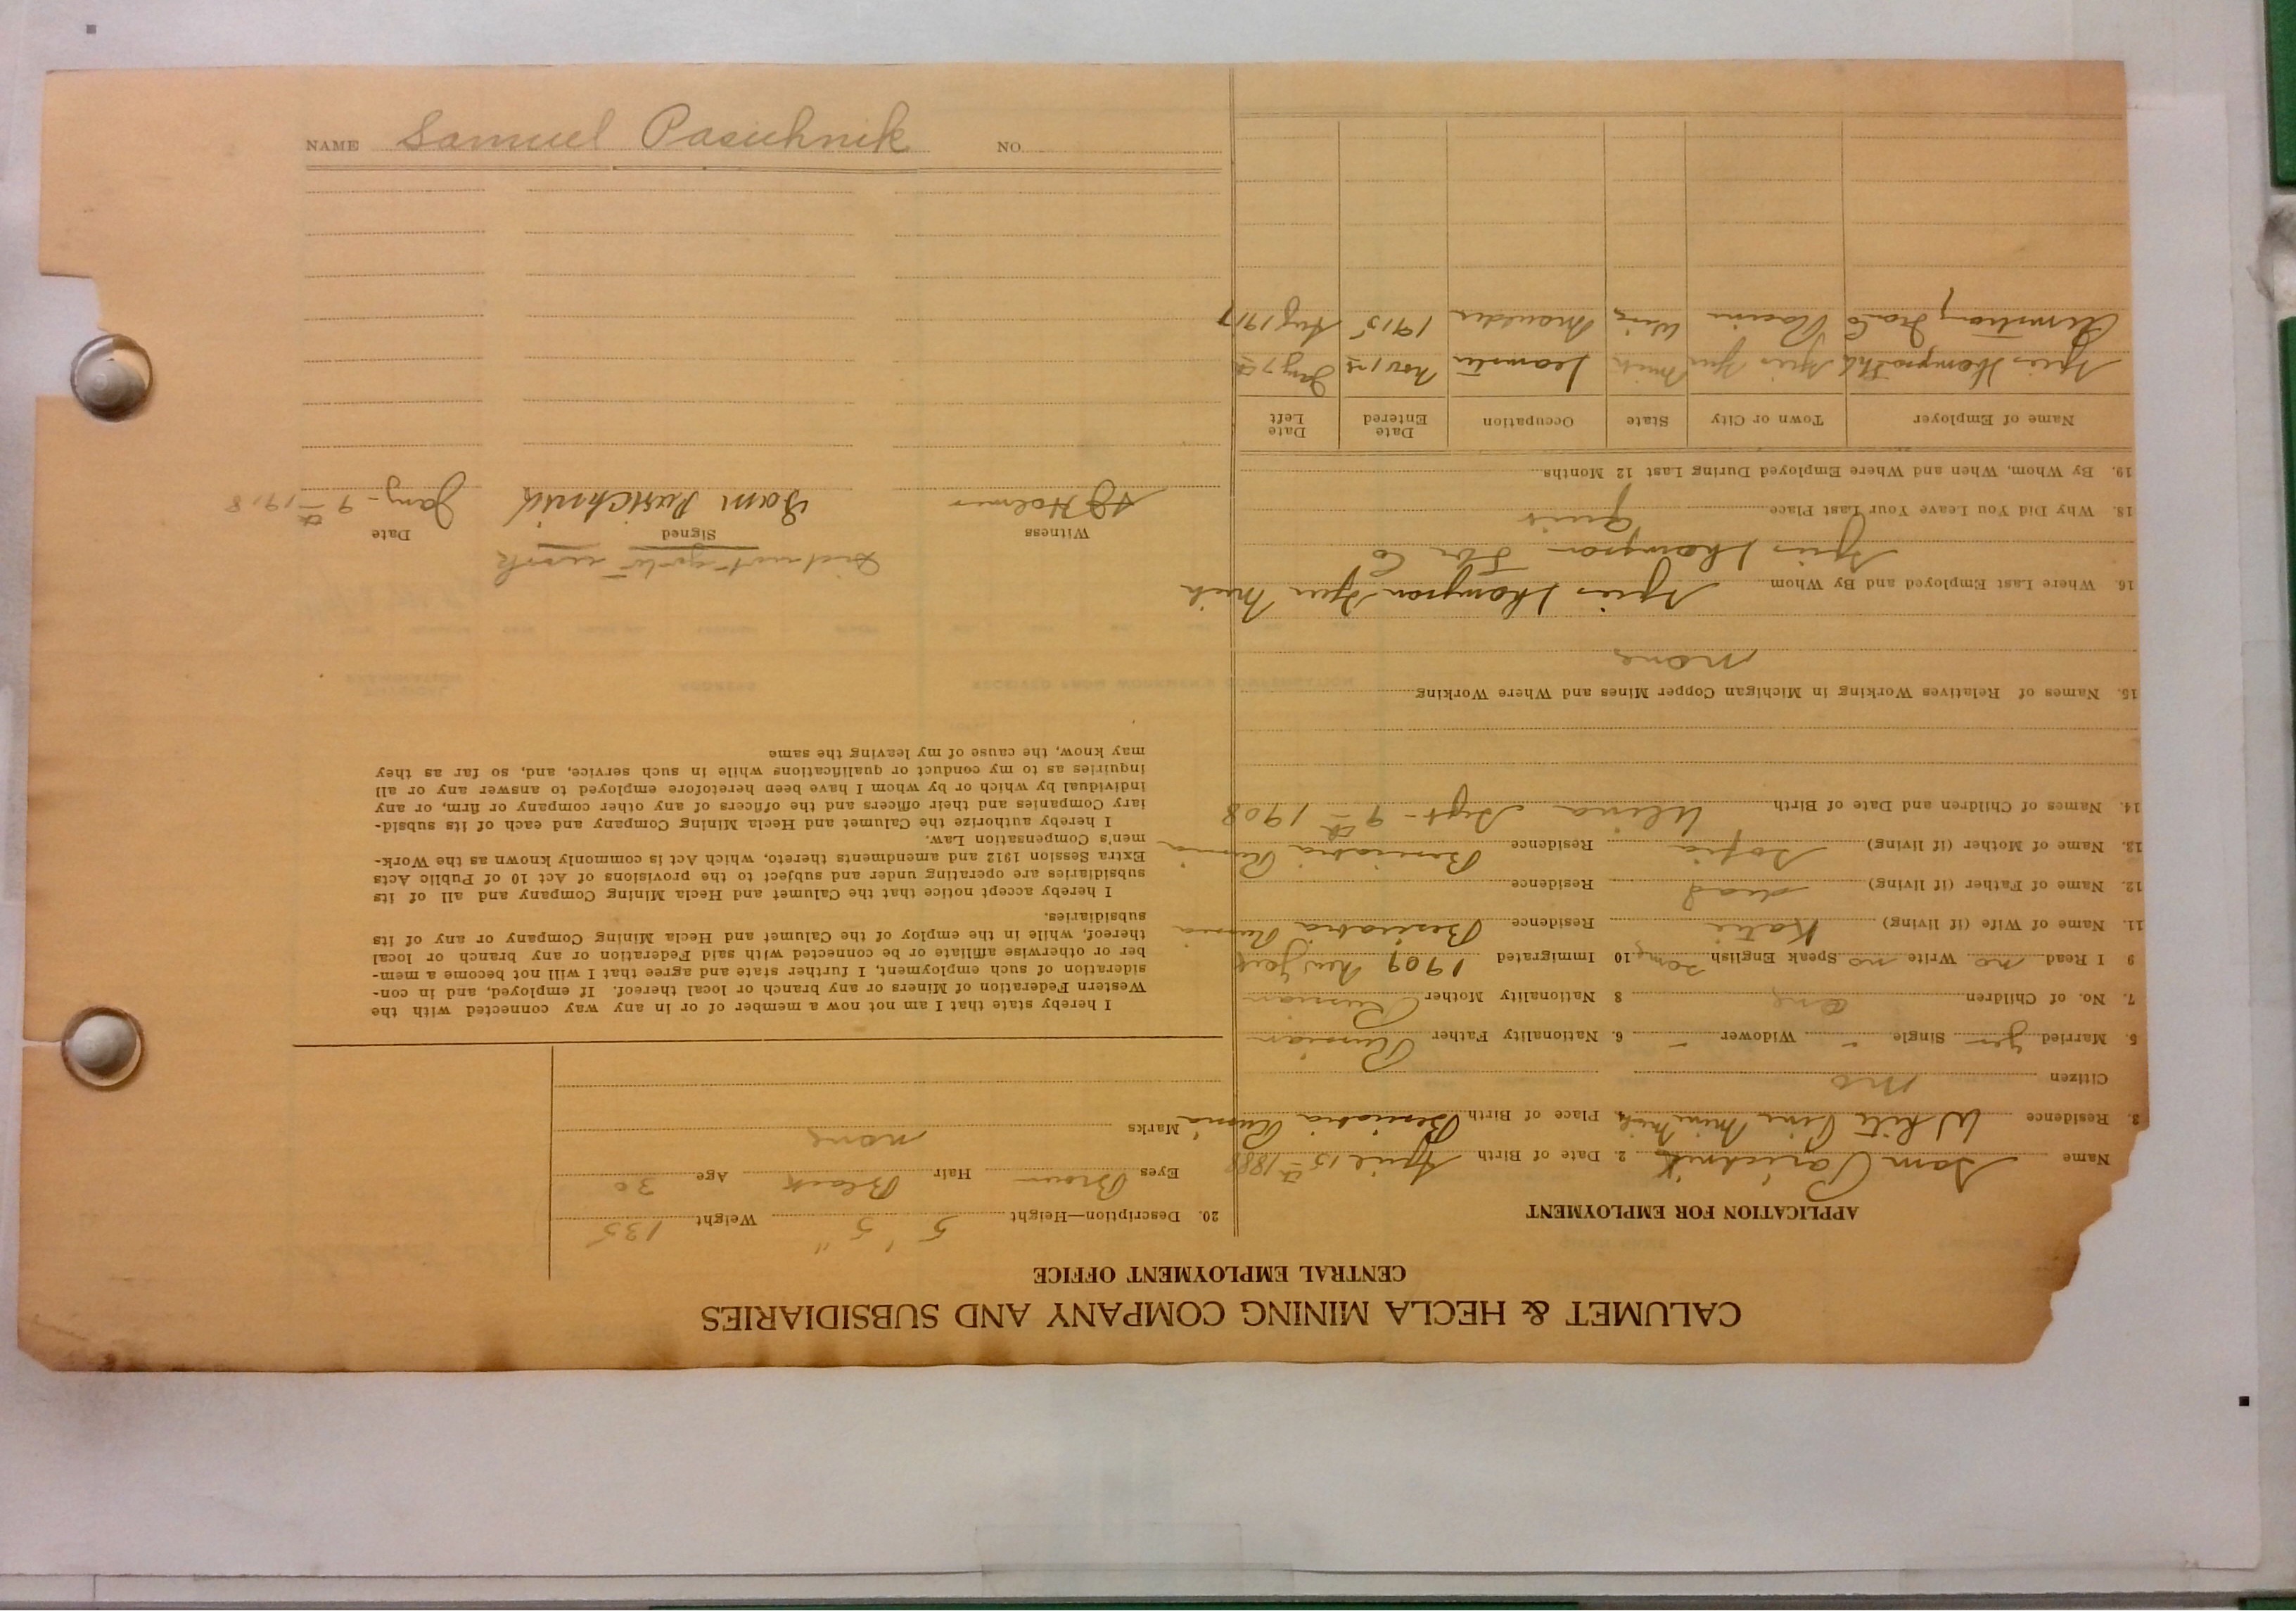 CALUMET & HECLA MINING COMPANY AND SUBSIDIARIES
CENTRAL EMPLOYMENT OFFICE
APPLICATION FOR EMPLOYMENT
Name Sam Pasichnik 2. Date of Birth April 15th 1888
3. Residence White Pine Mine Mich 4. Place of Birth Besirabia Russia
Citizen no
5. Married yes Single - Widower - 6. Nationality Father Russian
7. No. of Children one 8 Nationality Mother Russian
9 I Read no Write no Speak English some 10 Immigrated 1909 New York
11. Name of Wife (if living) Katie Residence Besirabia Russia
12. Name of Father (if living) dead Residence
13. Name of Mother (if living) Sofia Residence Besirabia Russia
14. Names of Children and Date of Birth Ulina Sept- 9th 1908
15. Names of Relatives Working in Michigan Copper Mines and Where Working
none
16. Where Last Employed and By Whom Thompson Mich
Thompson Co
18. Why Did You Leave Your Last Place quit
19. By Whom, When and Where Employed During Last 12 Months
Name of Employer Town or City State Occupation Date Entered Date Left
Mich Teamster Nov 1st Jany 7th
Armstrong Co Racine Wis Moulder 1915 Aug 1917
20. Description—Height 5' 5" Weight 135
Eyes Brown Hair Black Age 30
Marks none
I hereby state that I am not now a member of or in any way connected with the
Western Federation of Miners or any branch or local thereof. If employed, and in con-
sideration of such employment, I further state and agree that I will not become a mem-
ber or otherwise affiliate or be connected with said Federation or any branch or local
thereof, while in the employ of the Calumet and Hecla Mining Company or any of its
subsidiaries.
I hereby accept notice that the Calumet and Hecla Mining Company and all of its
subsidiaries are operating under and subject to the provisions of Act 10 of Public Acts
Extra Session 1912 and amendments thereto, which Act is commonly known as the Work-
men's Compensation Law.
I hereby authorize the Calumet and Hecla Mining Company and each of its subsid-
iary Companies and their officers and the officers of any other company or firm, or any
individual by which or by whom I have been heretofore employed to answer any or all
inquiries as to my conduct or qualifications while in such service, and, so far as they
may know, the cause of my leaving the same
Did not go to work
Witness Signed Date
Holmes Sam Pasichnik Jany- 9th 1918
NAME Samuel Pasichnik NO.